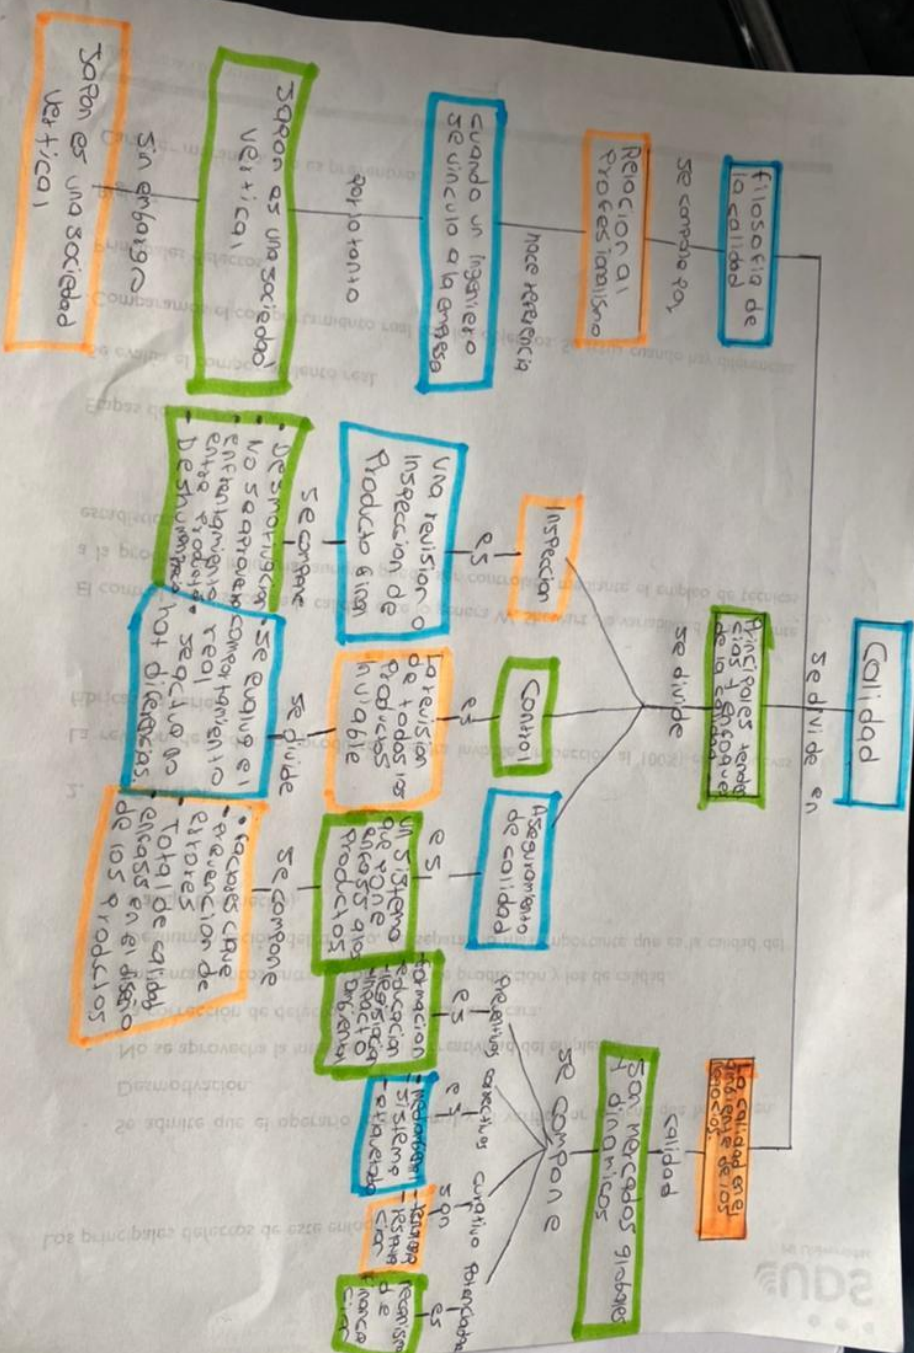 Calidad
se divide en
filosofia de
la calidad
se compone por
Relacion al
Profesionalismo
hace referencia
cuando un ingeniero
se vincula a la empresa
por lo tanto
Japon es una sociedad
vertical
Sin embargo
Japon es una sociedad
vertical
Principales tenden
cias y enfoques
de la calidad
se divide
Inspeccion
es
una revision o
Inspeccion de
Producto final
se compone
- Desmotivacion
- No se aprovecha
- enfrentamiento
entre productos
- Deshumaniza
Control
es
La revision
de todos los
productos
inviable
se divide
- Se evalua el
comportamiento
real
- se actua
hay diferencias
Aseguramiento
de calidad
es
un sistema
que pone
enfasis a los
productos
se compone
- factores clave
- Prevencion de
errores
- Total de calidad
- enfasis en el diseño
de los productos
La calidad en el
ambiente de los
negocios
calidad
Son mercados globales
y dinamicos
se compone
Preventivos
es
formacion
educacion
- legislacion
- impacto
ambiental
correctivos
es
- sistema
- etiquetado
curativo
son
Potenciador
es
mecanismo
de
financia